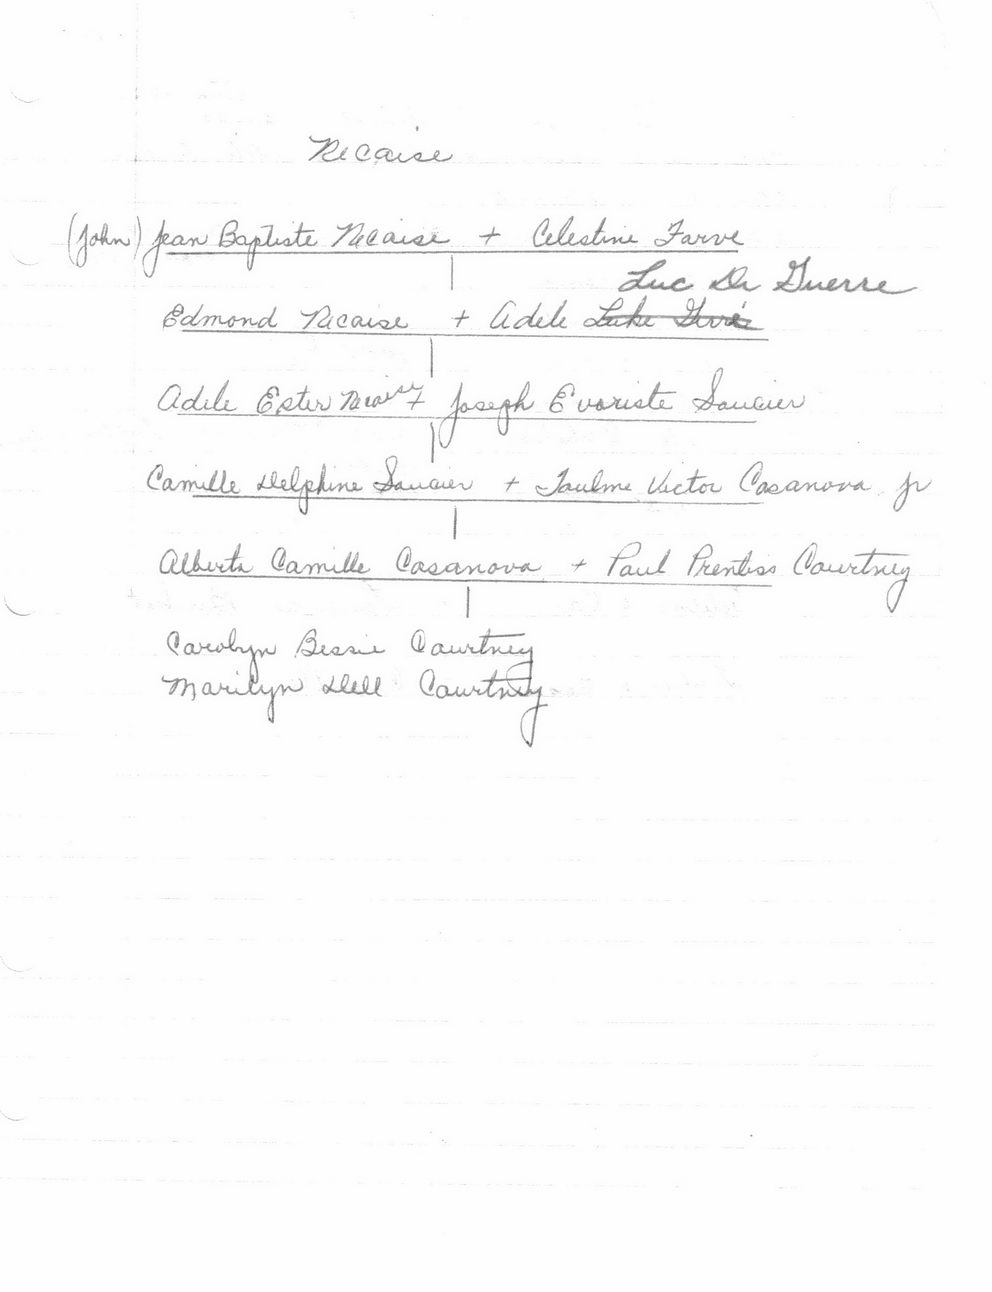 Necaise
(John) Jean Baptiste Necaise + Celestine Farve
Luc De Guerre
Edmond Necaise + Adele Luke Gerrés
Adele Ester Necaise + Joseph Evariste Saucier
Camille Delphine Saucier + Taulme Victor Casanova Jr
Alberta Camille Casanova + Paul Prentiss Courtney
Carolyn Bessie Courtney
Marilyn Dell Courtney